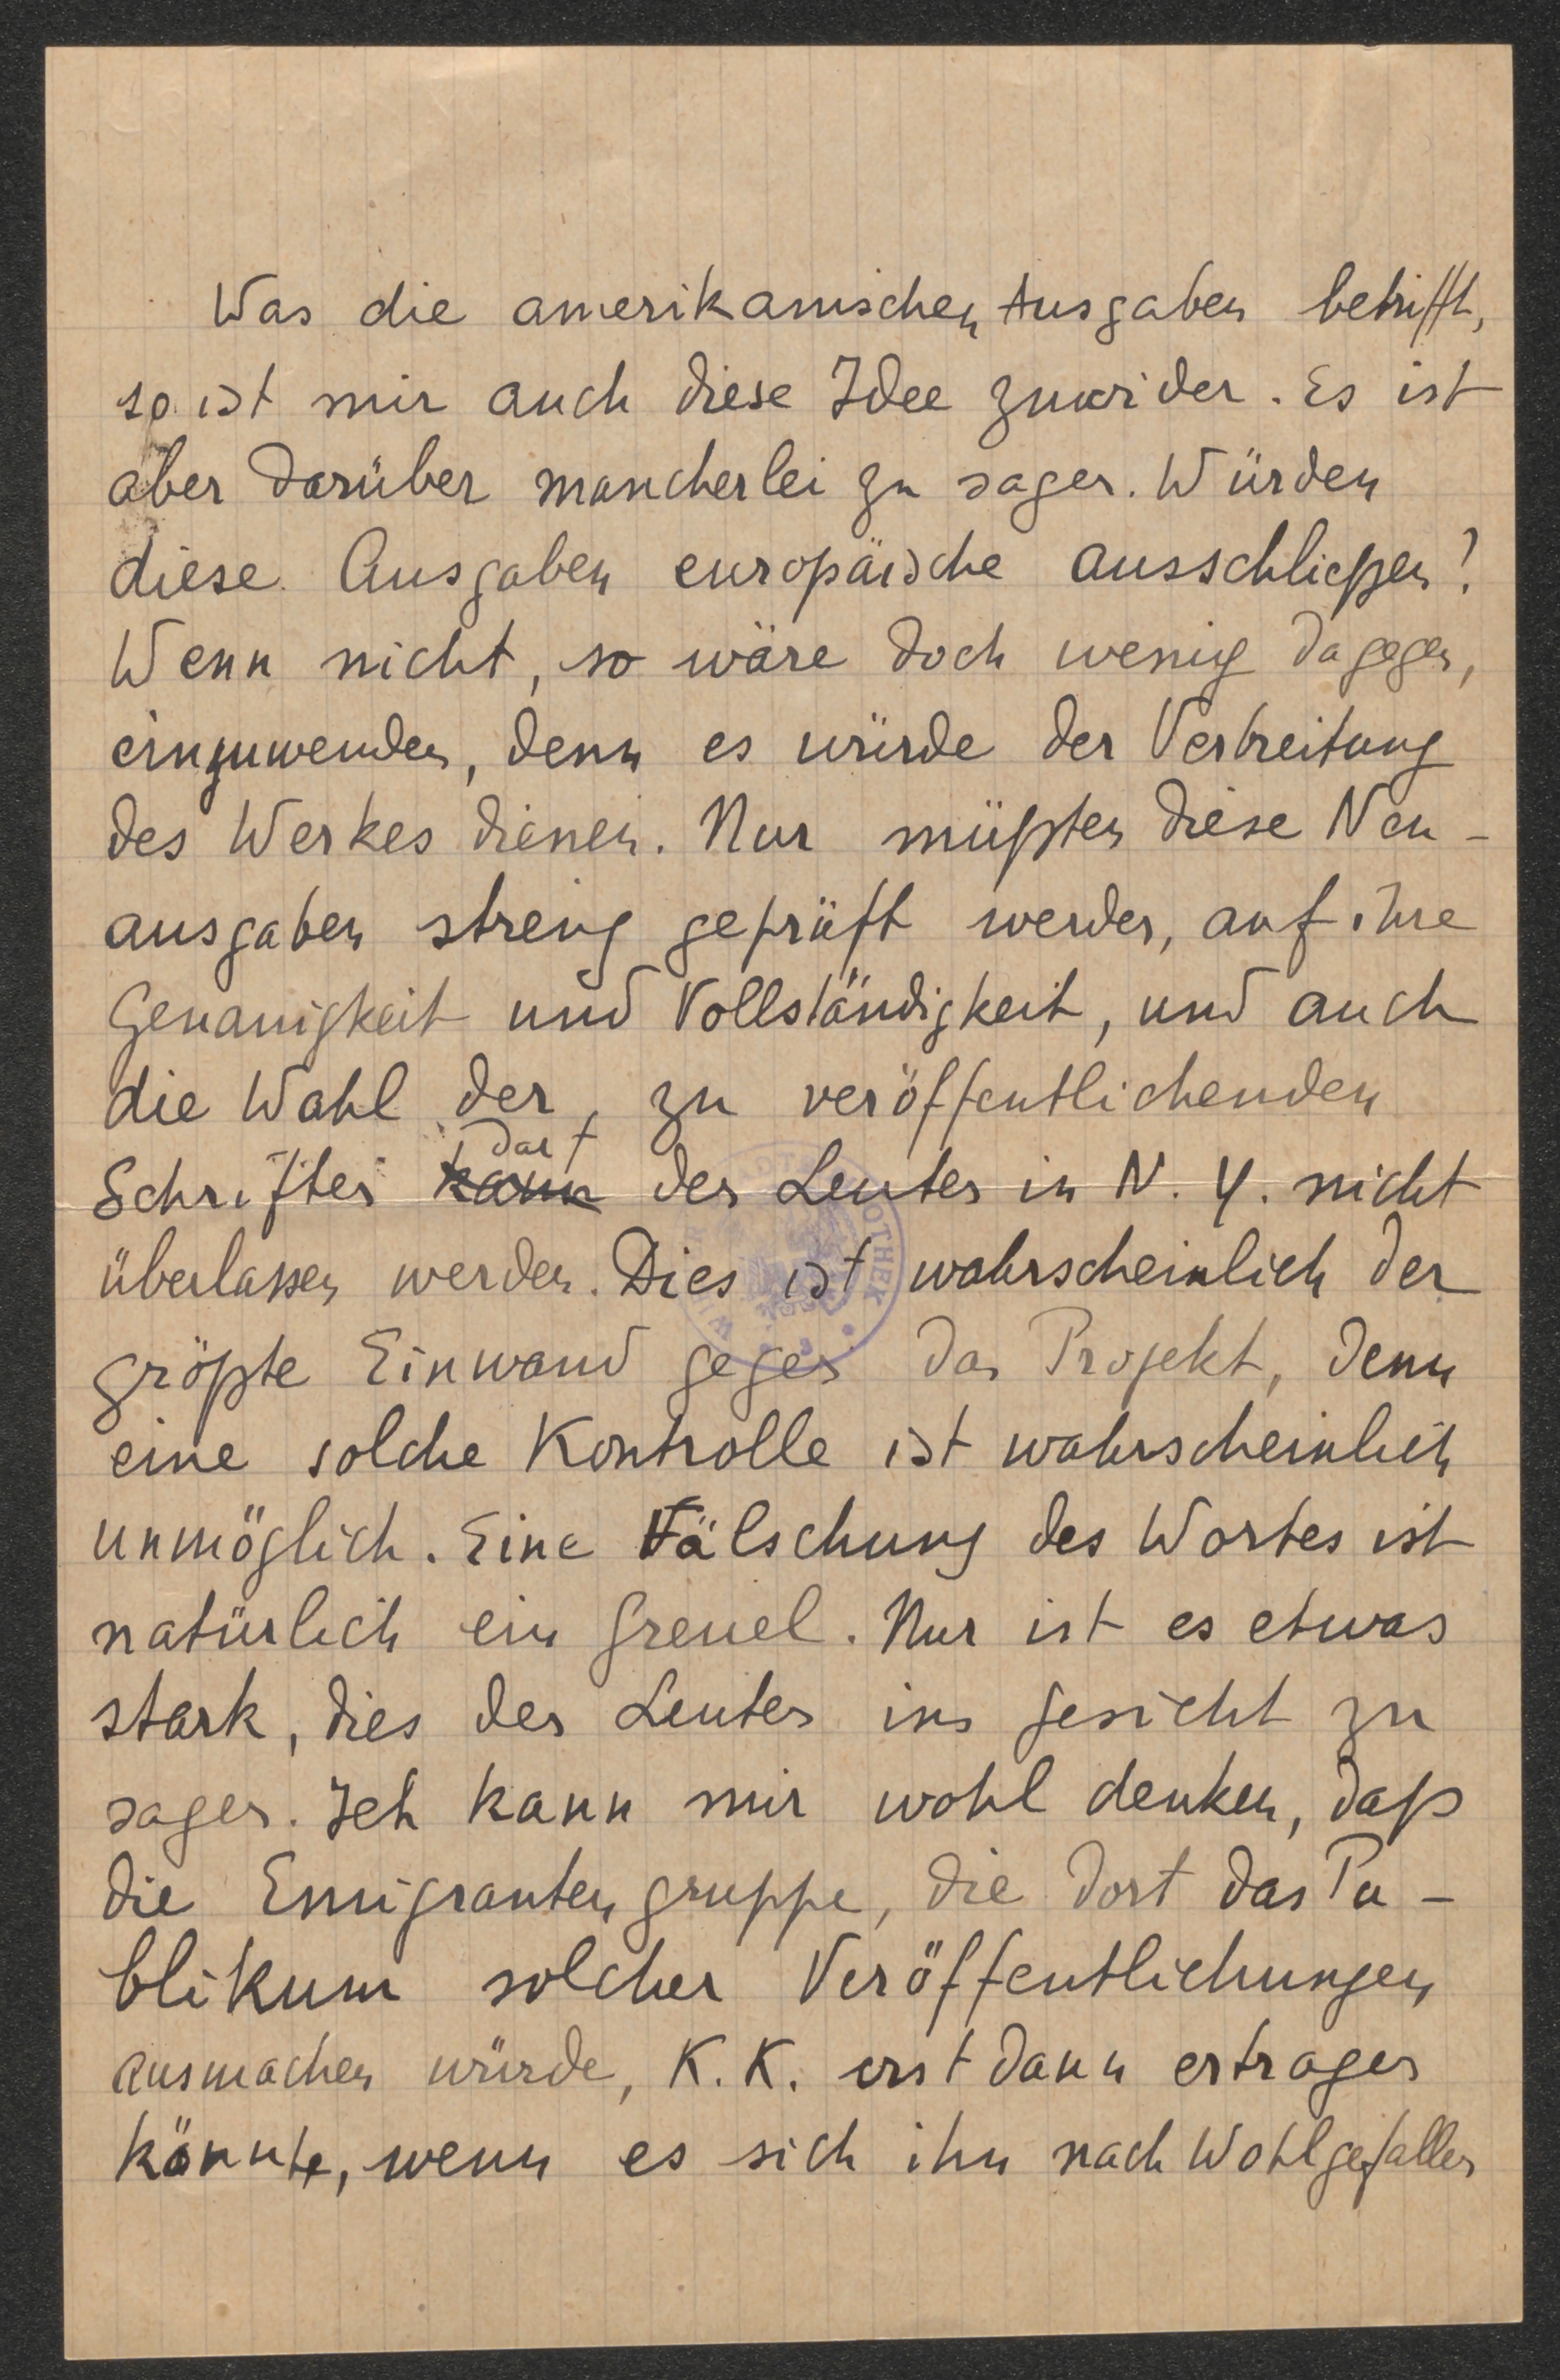 Was die amerikanischen Ausgaben betrifft,
so ist mir auch diese Idee zuwider. Es ist
aber darüber mancherlei zu sagen. Würden
diese Ausgaben europäische ausschließen?
Wenn nicht, so wäre doch wenig dagegen,
einzuwenden, denn es würde der Verbreitung
des Werkes dienen. Nur müßten diese Neu-
ausgaben streng geprüft werden, auf ihre
Genauigkeit und Vollständigkeit, und auch
die Wahl der, zu veröffentlichenden
Schriften, kann darf den Leuten in N. Y. nicht
überlassen werden. Dies ist wahrscheinlich der
größte Einwand gegen das Projekt, denn
eine solche Kontrolle ist wahrscheinlich
unmöglich. Eine Fälschung des Wortes ist
natürlich ein Greuel. Nur ist es etwas
stark, dies den Leuten ins Gesicht zu
sagen. Ich kann mir wohl denken, daß
die Emigrantengruppe, die dort das Pu-
blikum solcher Veröffentlichungen
ausmachen würde, K. K. erst dann ertragen
könnte, wenn es sich ihn nach Wohlgefallen